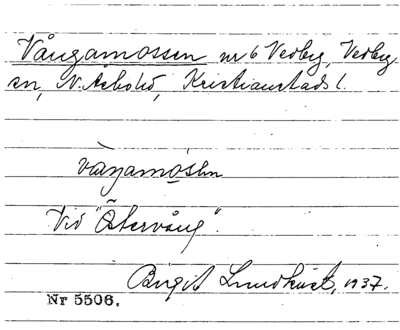 Vångamossen nr 6 Verby, Verby
sn, N. Åsbo hd, Kristianstads l.
vàŋamòsən
Vid "Östervång".
Birgit Lundkvist, 1937.
Nr 5506.